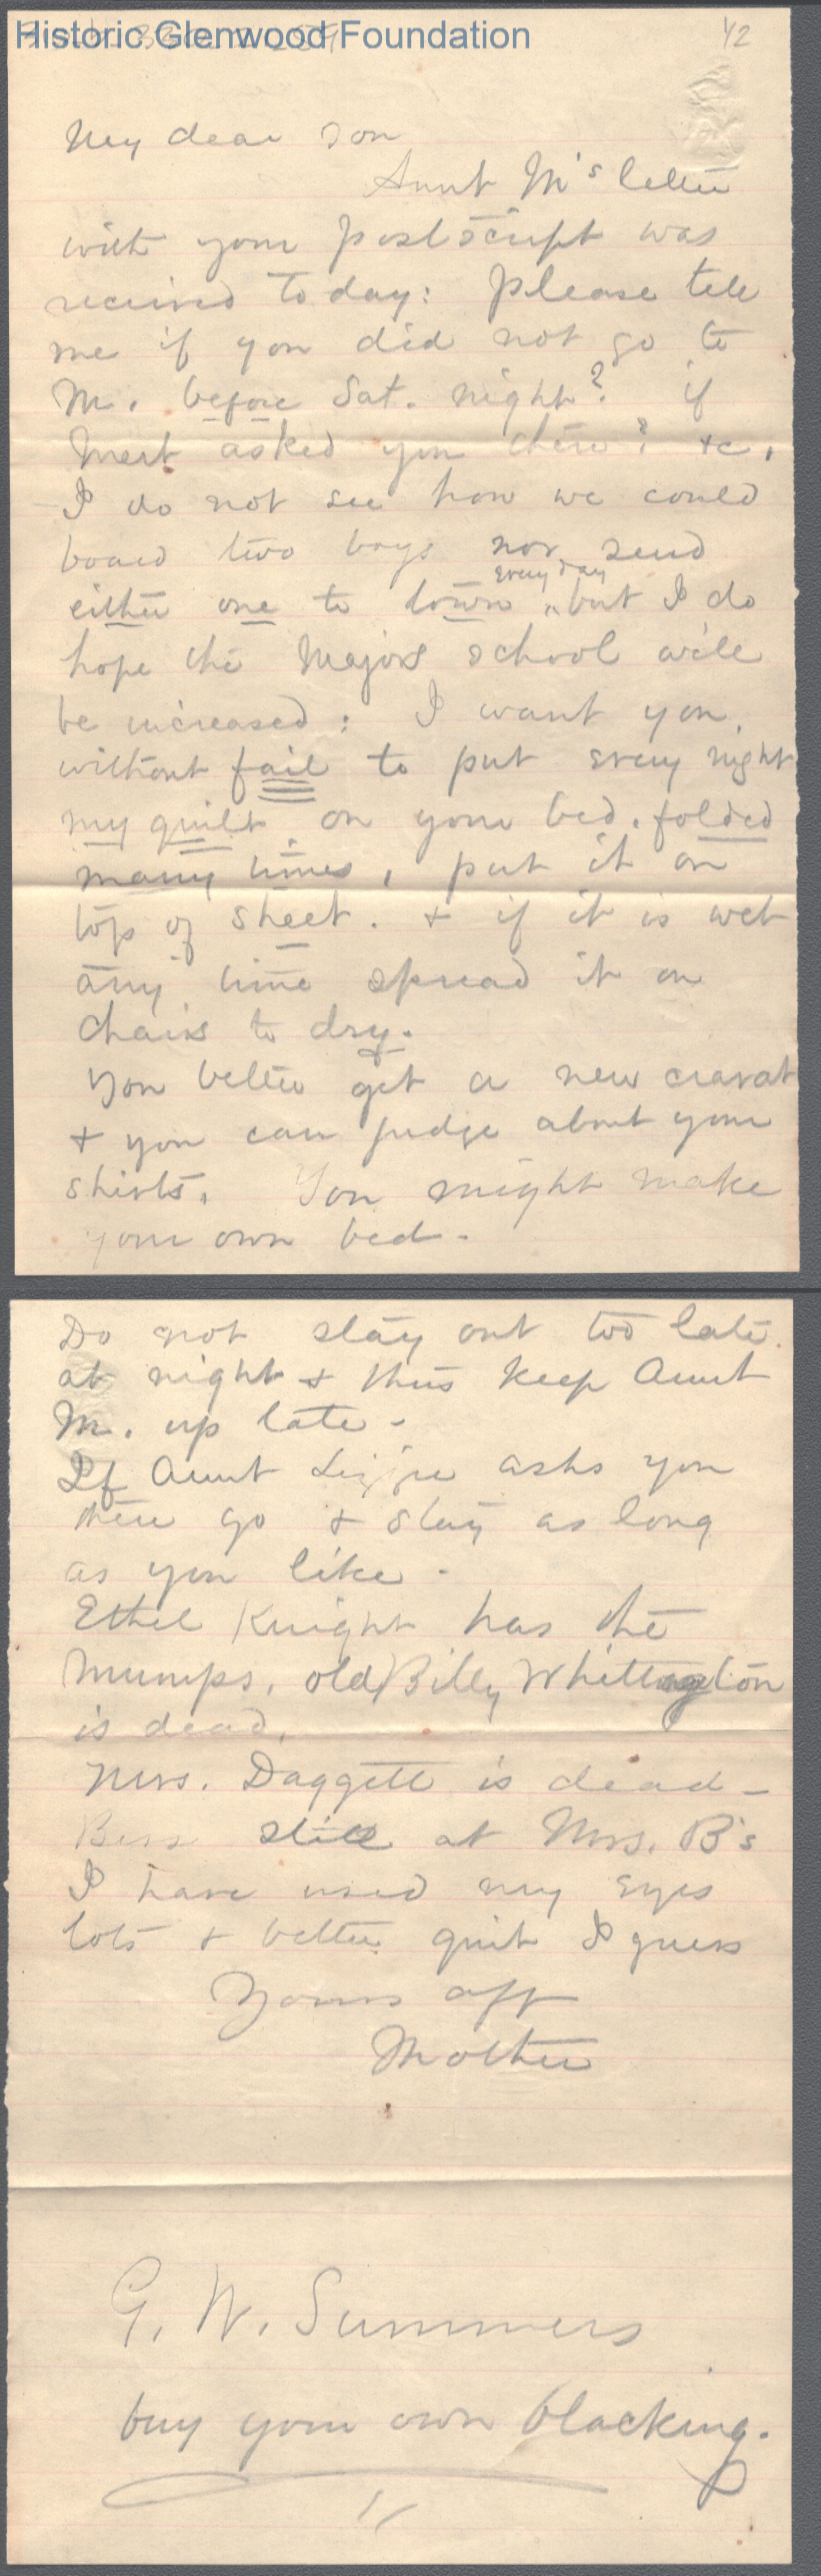 Historic Glenwood Foundation
1/2
My dear son
Aunt M's letter
with your postscript was
received to day: Please tell
me if you did not go to
M. before Sat. night? if
Mert asked you there? &c.
I do not see how we could
board two boys nor send
every day
either one to town, but I do
hope the Majors school will
be increased: I want you,
without fail to put every night
my quilt, on your bed. folded
many times, put it on
top of sheet. & if it is wet
any time spread it on
chairs to dry.
You better get a new cravat
& you can judge about your
shirts. You might make
your own bed.
Do not stay out too late
at night & thus keep Aunt
M. up late.
If Aunt Lizzie asks you
there go & stay as long
as you like.
Ethel Knight has the
mumps, old Billy Whittington
is dead.
Mrs. Daggett is dead
Bess still at Mrs. B's
I have used my eyes
lots & better quit I guess
Yours aff
Mother
G. W. Summers
buy your own blacking.